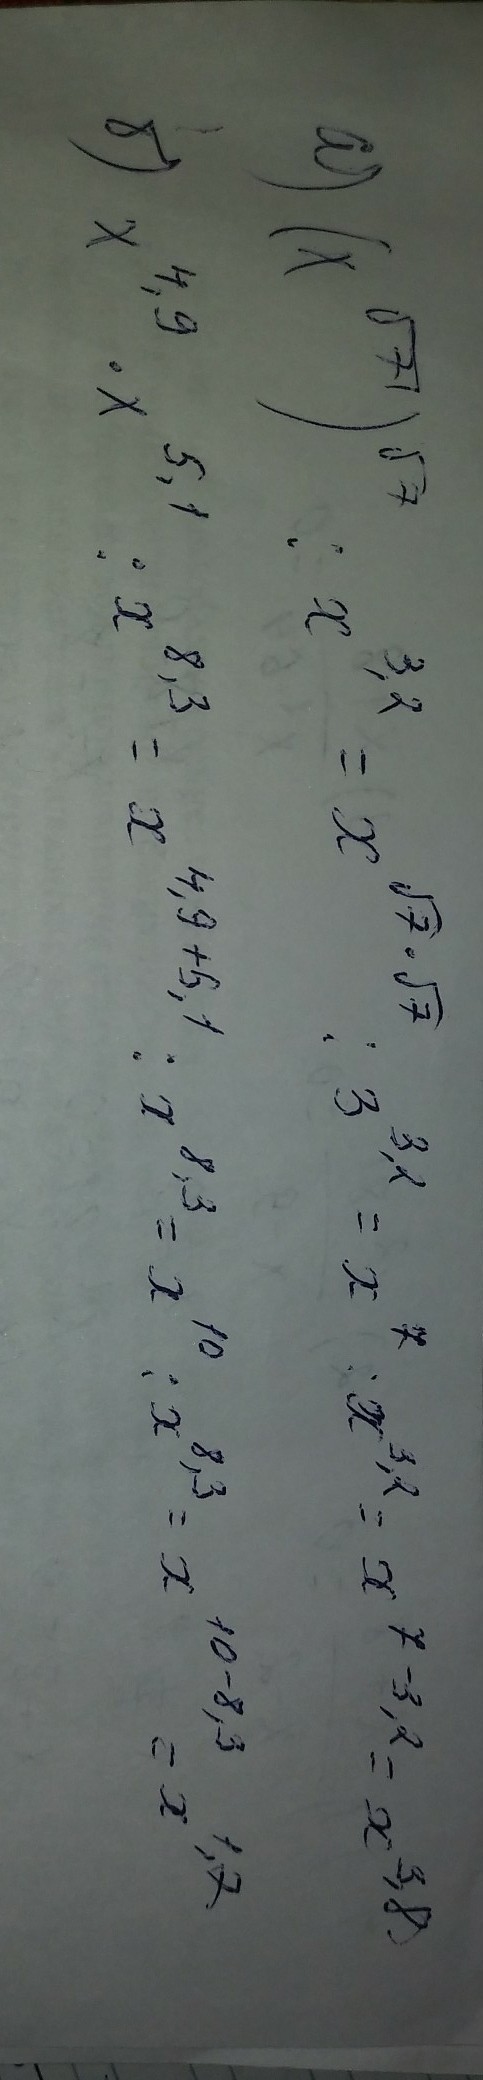 а) (x^√7)^√7 : x^3,2 = x^√7·√7 : 3^3,2 = x^7 : x^3,2 = x^7-3,2 = x^3,8
б) x^4,9 · x^5,1 : x^8,3 = x^4,9+5,1 : x^8,3 = x^10 : x^8,3 = x^10-8,3 = x^1,7